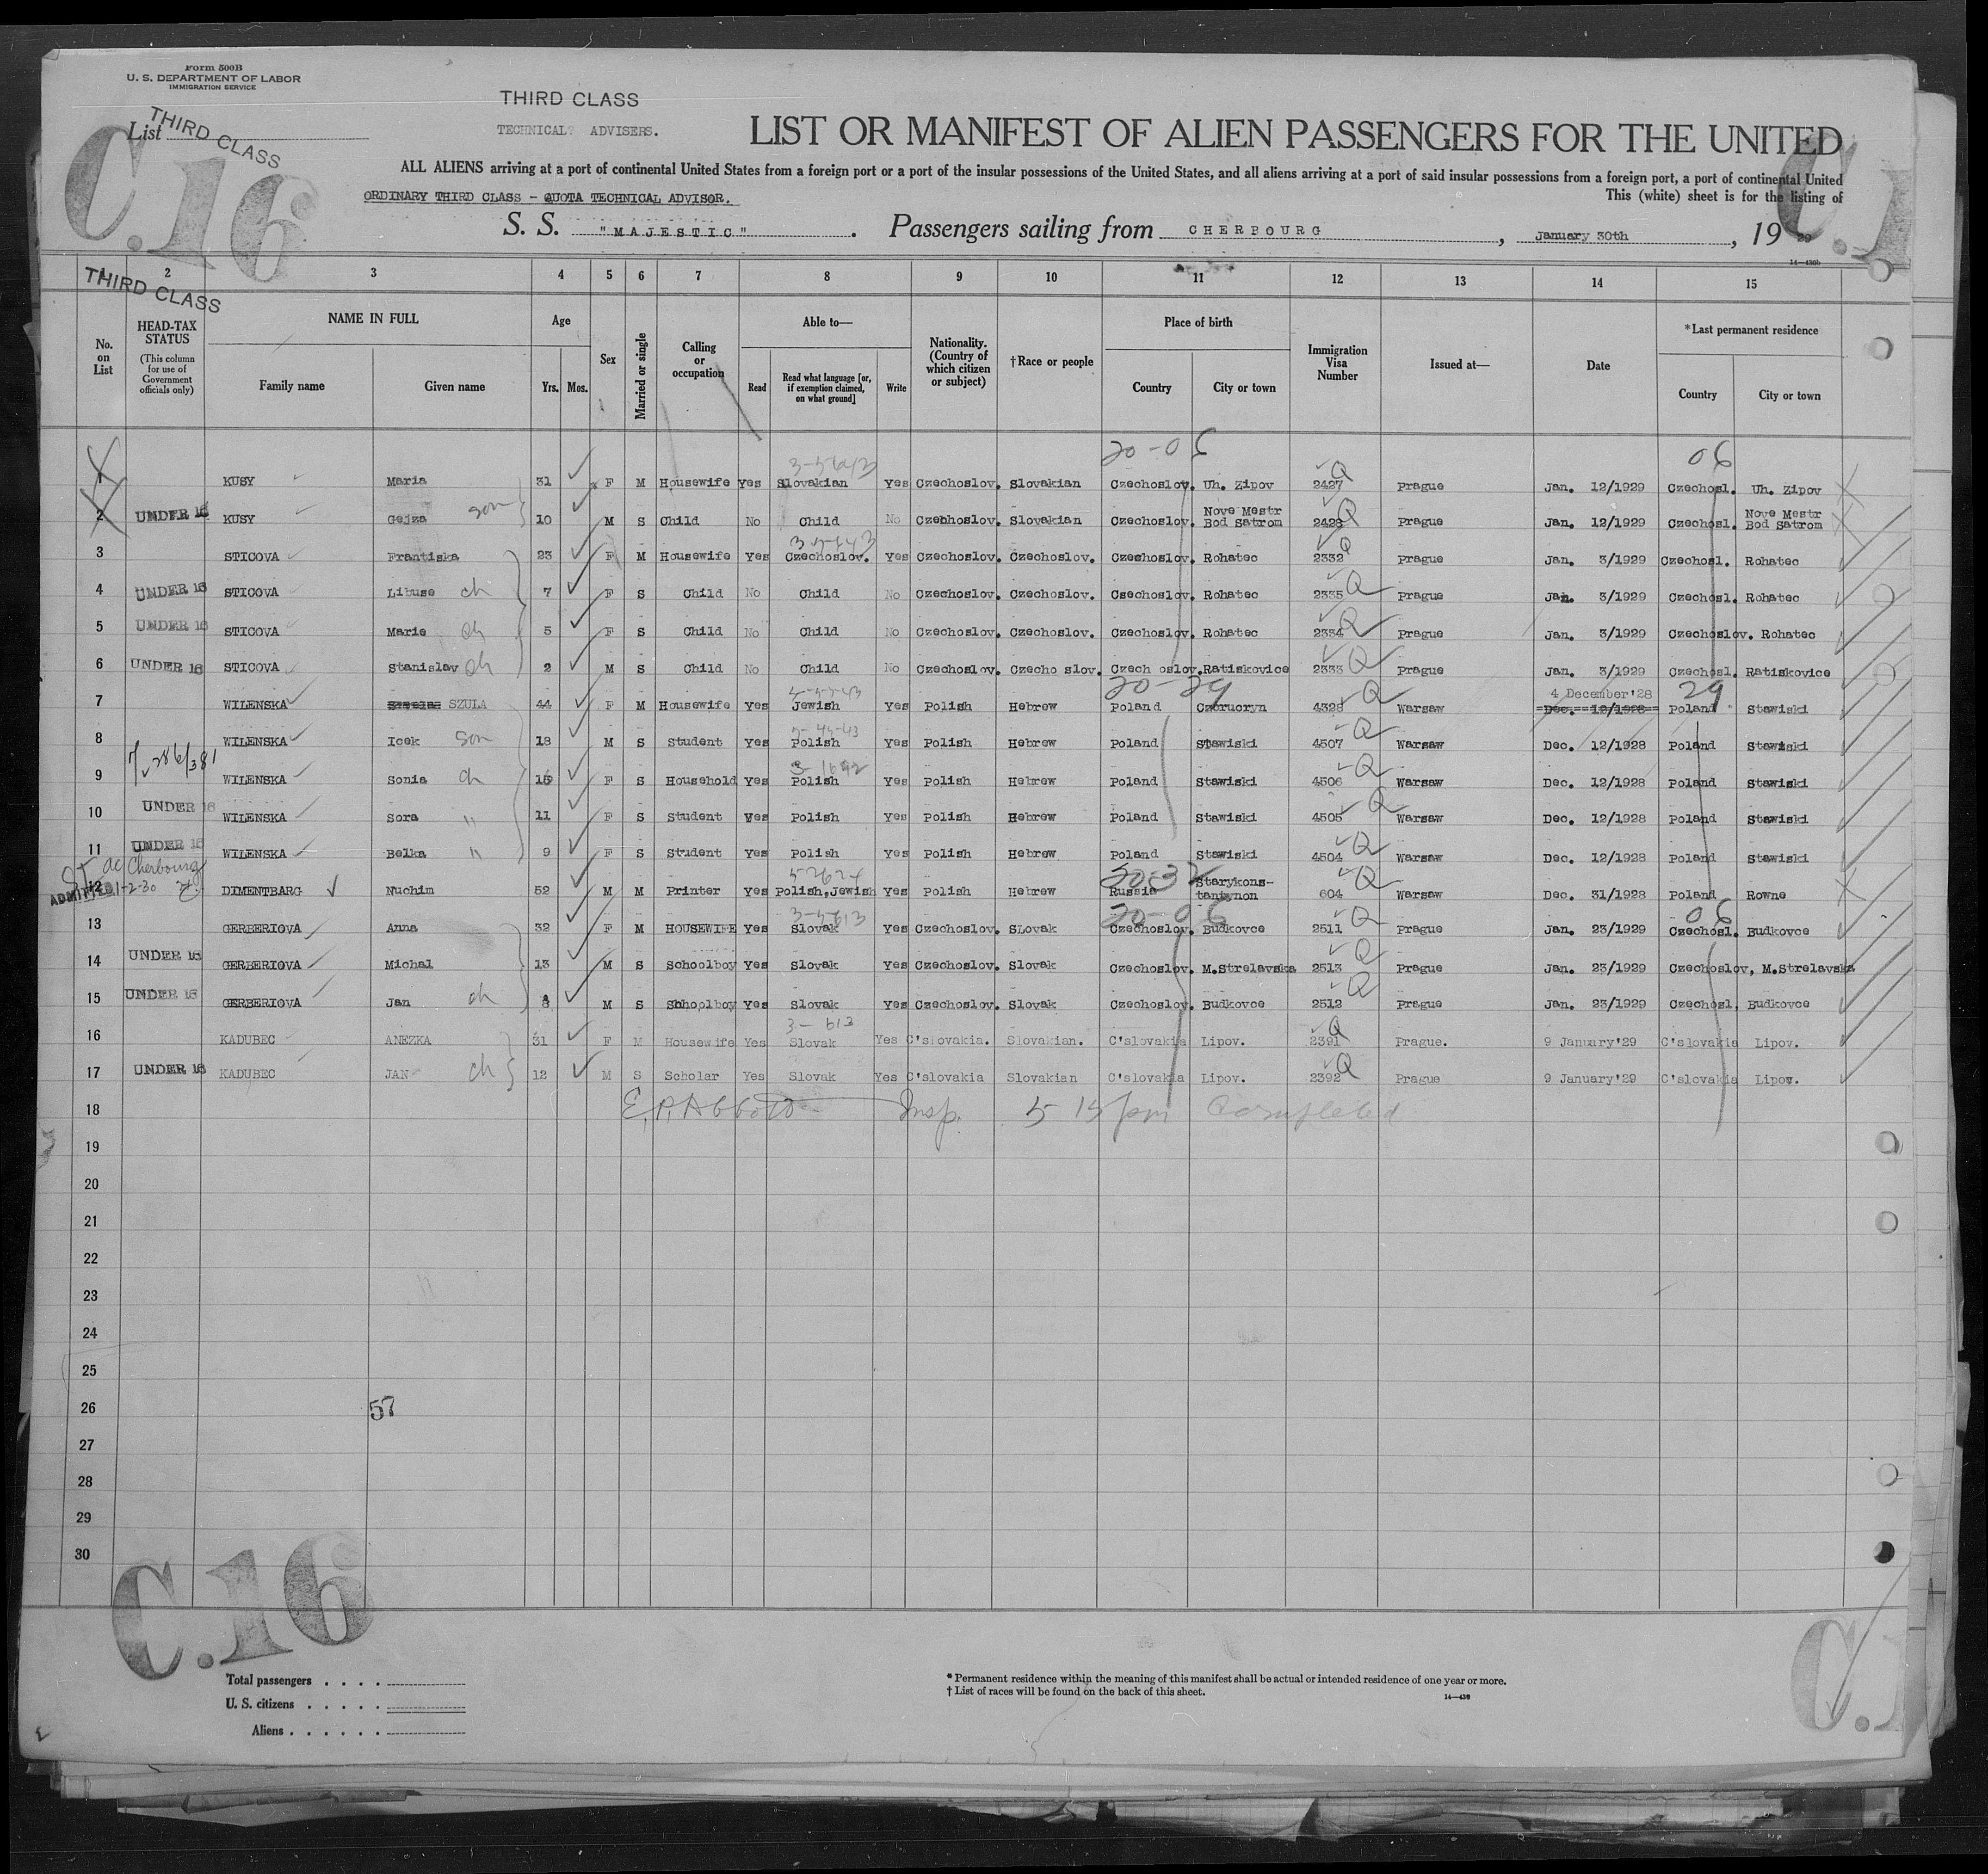 Form 500B
U. S. DEPARTMENT OF LABOR
IMMIGRATION SERVICE
THIRD CLASS
List
THIRD CLASS
TECHNICAL ADVISERS.
LIST OR MANIFEST OF ALIEN PASSENGERS FOR THE UNITED
C.16
C.1
ALL ALIENS arriving at a port of continental United States from a foreign port or a port of the insular possessions of the United States, and all aliens arriving at a port of said insular possessions from a foreign port, a port of continental United
This (white) sheet is for the listing of
ORDINARY THIRD CLASS - QUOTA TECHNICAL ADVISOR.
S. S. "MAJESTIC" . Passengers sailing from CHERBOURG , January 30th , 19 29
14—430b
1 2 3 4 5 6 7 8 9 10 11 12 13 14 15
THIRD CLASS
No. on List
HEAD-TAX STATUS (This column for use of Government officials only)
NAME IN FULL Family name Given name
Age Yrs. Mos.
Sex
Married or single
Calling or occupation
Able to— Read Read what language [or, if exemption claimed, on what ground] Write
Nationality. (Country of which citizen or subject)
†Race or people
Place of birth Country City or town
Immigration Visa Number
Issued at—
Date
*Last permanent residence Country City or town
20-06 06
3-5643
1 KUSY Maria 31 F M Housewife Yes Slovakian Yes Czechoslov. Slovakian Czechoslov. Uh. Zipov 2427 Q Prague Jan. 12/1929 Czechosl. Uh. Zipov
2 UNDER 16 KUSY Gejza son 10 M S Child No Child No Czechoslov. Slovakian Czechoslov. Nove Mestr Bod Satrom 2428 Q Prague Jan. 12/1929 Czechosl. Nove Mestr Bod Satrom
3 STICOVA Frantiska 23 F M Housewife Yes Czechoslov. Yes Czechoslov. Czechoslov. Czechoslov. Rohatec 2332 Q Prague Jan. 3/1929 Czechosl. Rohatec
4 UNDER 16 STICOVA Libuse ch 7 F S Child No Child No Czechoslov. Czechoslov. Czechoslov. Rohatec 2335 Q Prague Jan. 3/1929 Czechosl. Rohatec
5 UNDER 16 STICOVA Marie ch 5 F S Child No Child No Czechoslov. Czechoslov. Czechoslov. Rohatec 2334 Q Prague Jan. 3/1929 Czechoslov. Rohatec
6 UNDER 16 STICOVA Stanislav ch 2 M S Child No Child No Czechoslov. Czecho slov. Czech oslov. Ratiskovice 2333 Q Prague Jan. 3/1929 Czechosl. Ratiskovice
20-29 4 December'28 29
7 WILENSKA SZULA 44 F M Housewife Yes Jewish Yes Polish Hebrew Poland Czerucryn 4328 Q Warsaw Dec. 12/1928 Poland Stawiski
8 WILENSKA Icek son 18 M S Student Yes Polish Yes Polish Hebrew Poland Stawiski 4507 Q Warsaw Dec. 12/1928 Poland Stawiski
9 WILENSKA Sonia ch 16 F S Household Yes Polish Yes Polish Hebrew Poland Stawiski 4506 Q Warsaw Dec. 12/1928 Poland Stawiski
10 UNDER 16 WILENSKA Sora " 11 F S Student Yes Polish Yes Polish Hebrew Poland Stawiski 4505 Q Warsaw Dec. 12/1928 Poland Stawiski
11 UNDER 16 WILENSKA Belka " 9 F S Student Yes Polish Yes Polish Hebrew Poland Stawiski 4504 Q Warsaw Dec. 12/1928 Poland Stawiski
Cherbourg
ADMITTED 1-2-30
20-32
12 DIMENTBARG Nuchim 52 M M Printer Yes Polish,Jewish Yes Polish Hebrew Russia Starykons-tantynon 604 Q Warsaw Dec. 31/1928 Poland Rowne
3-5613 20-06 06
13 GERBERIOVA Anna 32 F M HOUSEWIFE Yes Slovak Yes Czechoslov. Slovak Czechoslov. Budkovce 2511 Q Prague Jan. 23/1929 Czechosl. Budkovce
14 UNDER 16 GERBERIOVA Michal 13 M S Schoolboy Yes Slovak Yes Czechoslov. Slovak Czechoslov. M.Strelavska 2513 Q Prague Jan. 23/1929 Czechoslov, M.Strelavska
15 UNDER 16 GERBERIOVA Jan ch 8 M S Schoolboy Yes Slovak Yes Czechoslov. Slovak Czechoslov. Budkovce 2512 Q Prague Jan. 23/1929 Czechosl. Budkovce
3- 613
16 KADUBEC ANEZKA 31 F M Housewife Yes Slovak Yes C'slovakia. Slovakian. C'slovakia Lipov. 2391 Q Prague. 9 January'29 C'slovakia Lipov.
17 UNDER 16 KADUBEC JAN ch 12 M S Scholar Yes Slovak Yes C'slovakia Slovakian C'slovakia Lipov. 2392 Q Prague 9 January'29 C'slovakia Lipov.
18 E. P. Abbott Insp. 5 15 pm Completed
19
20
21
22
23
24
25
26 57
27
28
29
30
C.16
C.1
Total passengers . . . .
U. S. citizens . . . . .
Aliens . . . . . .
* Permanent residence within the meaning of this manifest shall be actual or intended residence of one year or more.
† List of races will be found on the back of this sheet.
14—430